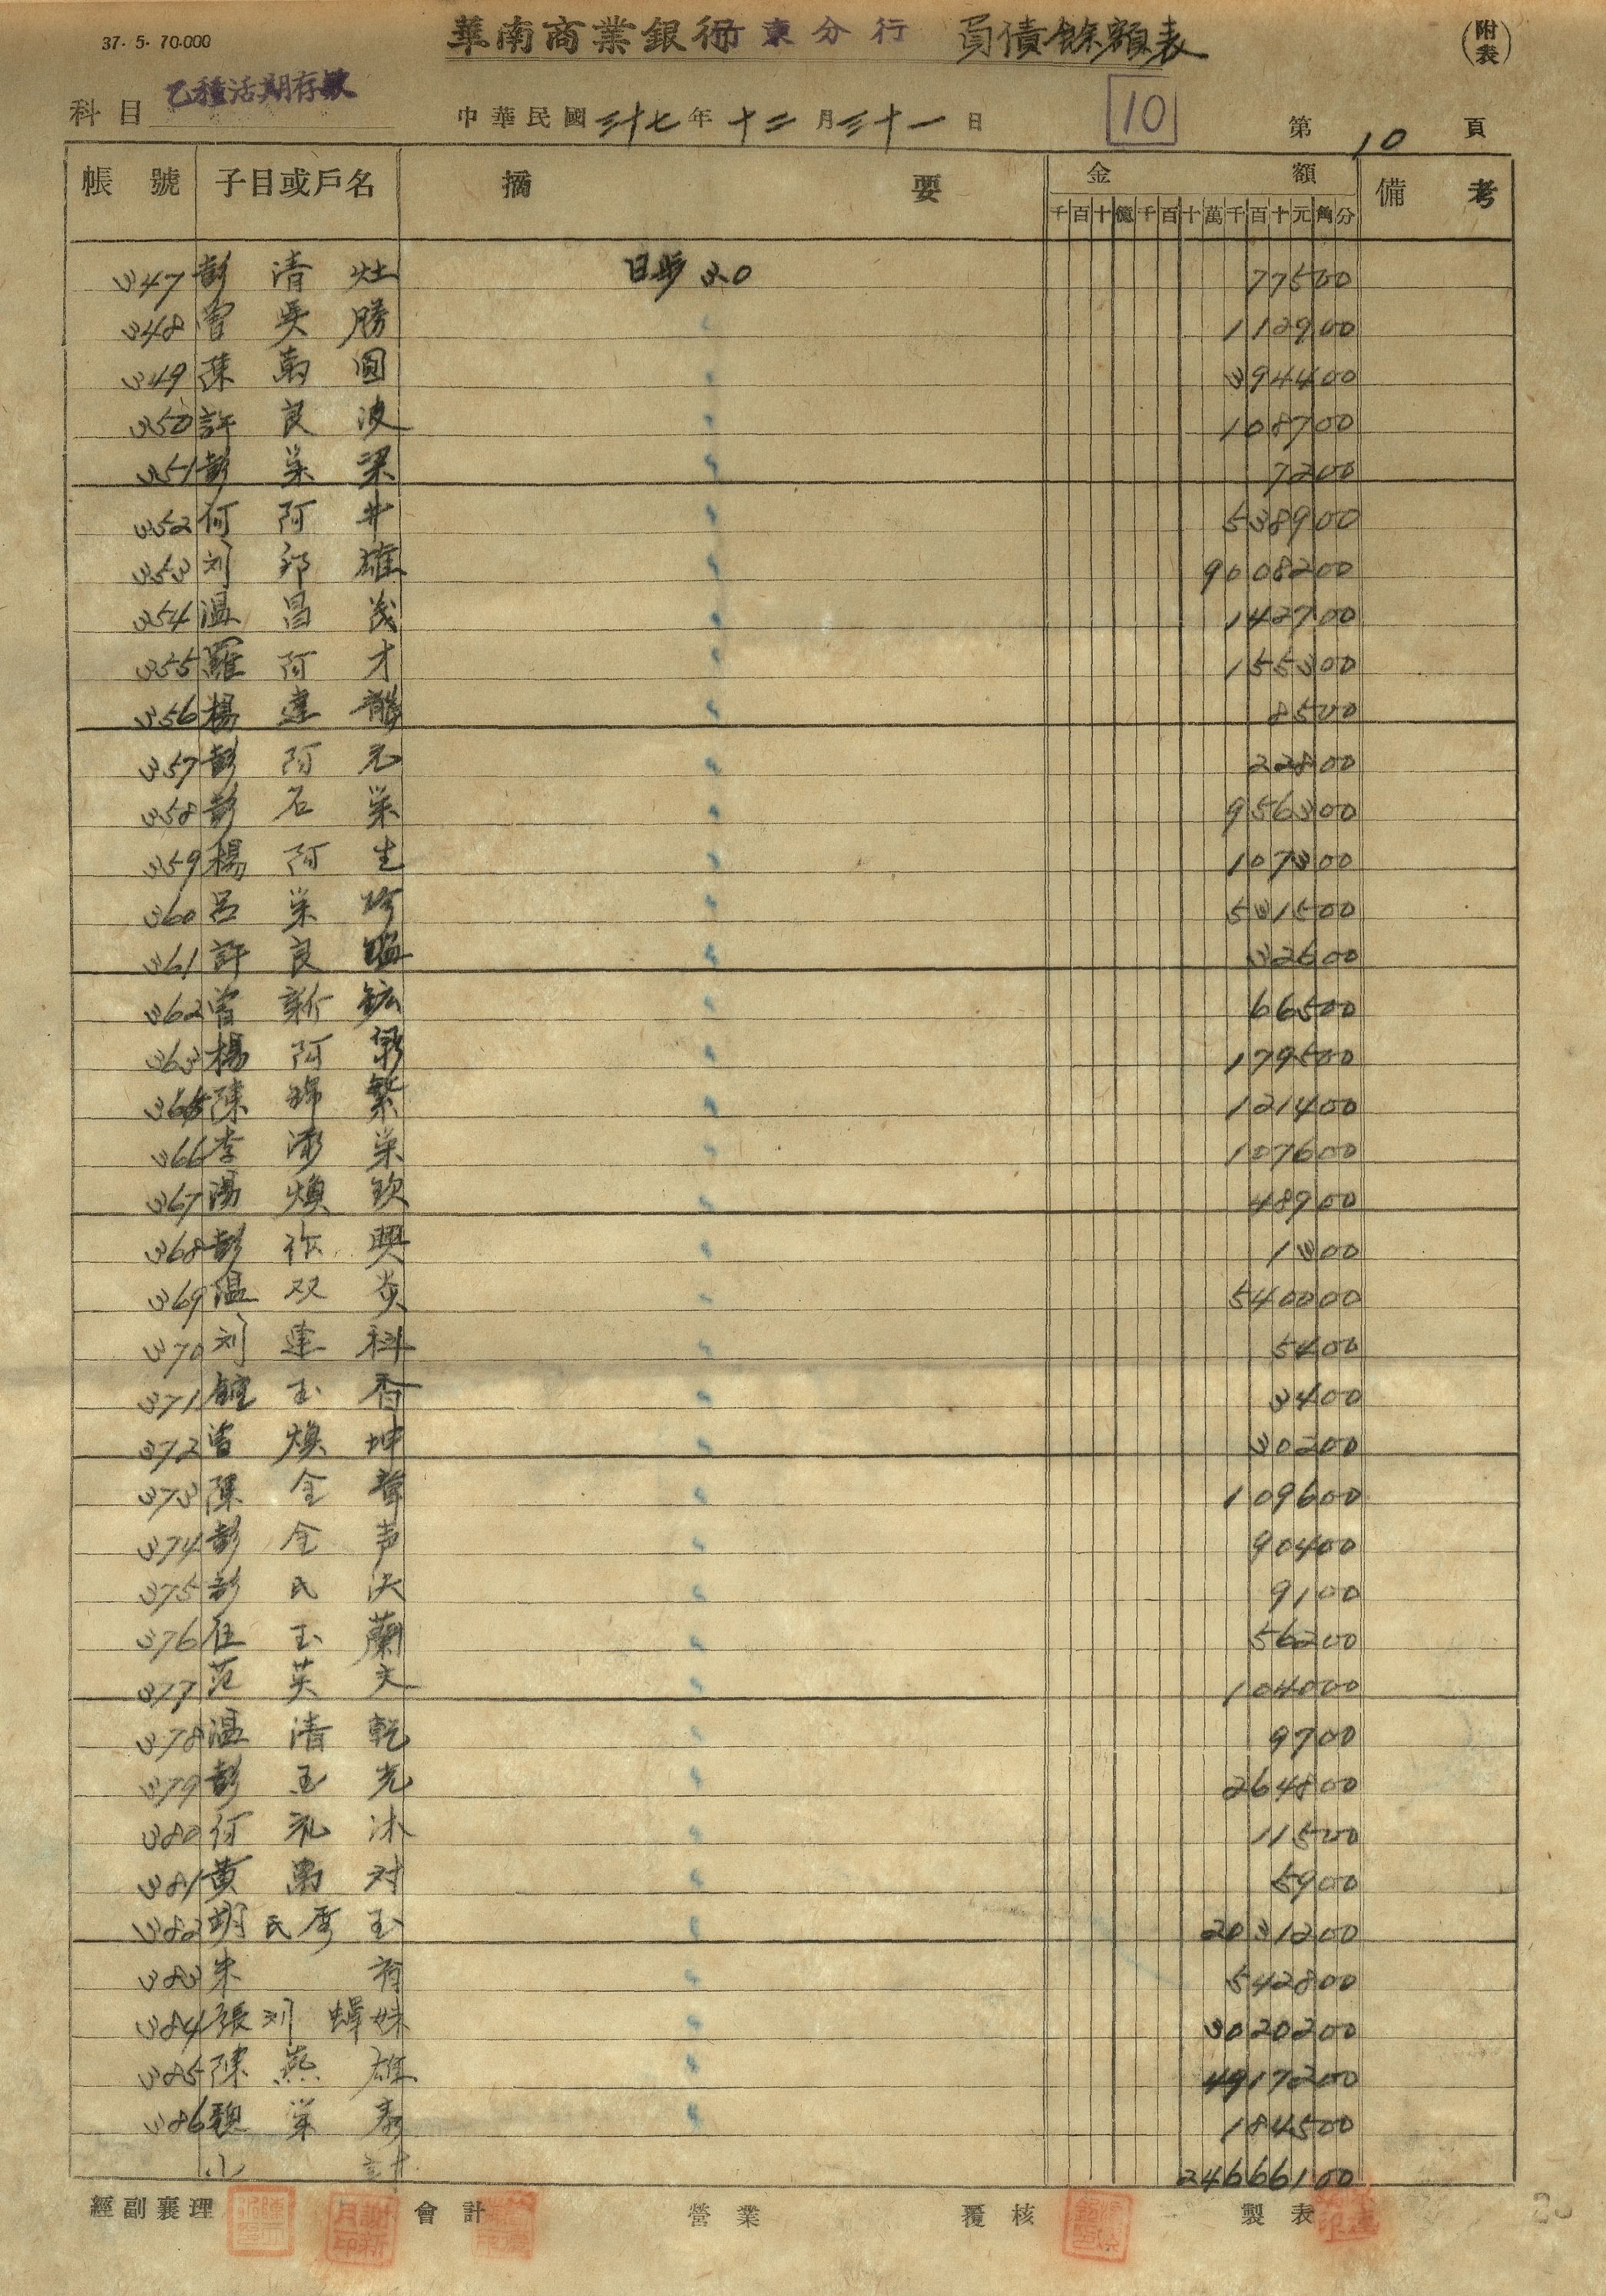 37. 5. 70.000
華南商業銀行竹東分行 負債餘額表
(附表)
科目 乙種活期存款
中華民國三十七年十二月三十一日
10
第 10 頁
帳號 子目或戶名 摘要 金額 備考
千百十億千百十萬千百十元角分
347 彭清灶 日步 3.0 77500
348 曾吳勝 〃 112900
349 陳萬圓 〃 394400
350 許良波 〃 108700
351 彭栄梁 〃 7200
352 何阿井 〃 538900
353 刘邦雄 〃 9008200
354 温昌茂 〃 142700
355 羅阿才 〃 155300
356 楊達 〃 8500
357 彭阿元 〃 22800
358 彭石栄 〃 956300
359 楊阿生 〃 107300
360 呂栄珍 〃 531500
361 許良 〃 32600
362 曾新鉱 〃 66500
363 楊阿 〃 179500
365 陳錦繁 〃 121400
366 李添栄 〃 107600
367 湯煥欽 〃 48900
368 彭作興 〃 1300
369 温双炎 〃 540000
370 刘連科 〃 5400
371 鍾玉香 〃 3400
372 曾煥坤 〃 30200
373 陳金聲 〃 109600
374 彭金声 〃 90400
375 彭民 〃 9100
376 任玉蘭 〃 56200
377 范英夫 〃 104000
378 温清乾 〃 9700
379 彭玉光 〃 264800
380 何乳沐 〃 11500
381 黄萬对 〃 5900
382 胡氏秀玉 〃 2031200
383 朱有 〃 542800
384 張刘蟬妹 〃 3020200
385 陳燕雄 〃 4917200
386 魏栄泰 〃 184500
小計 24666100
經副襄理 會計 營業 覆核 製表